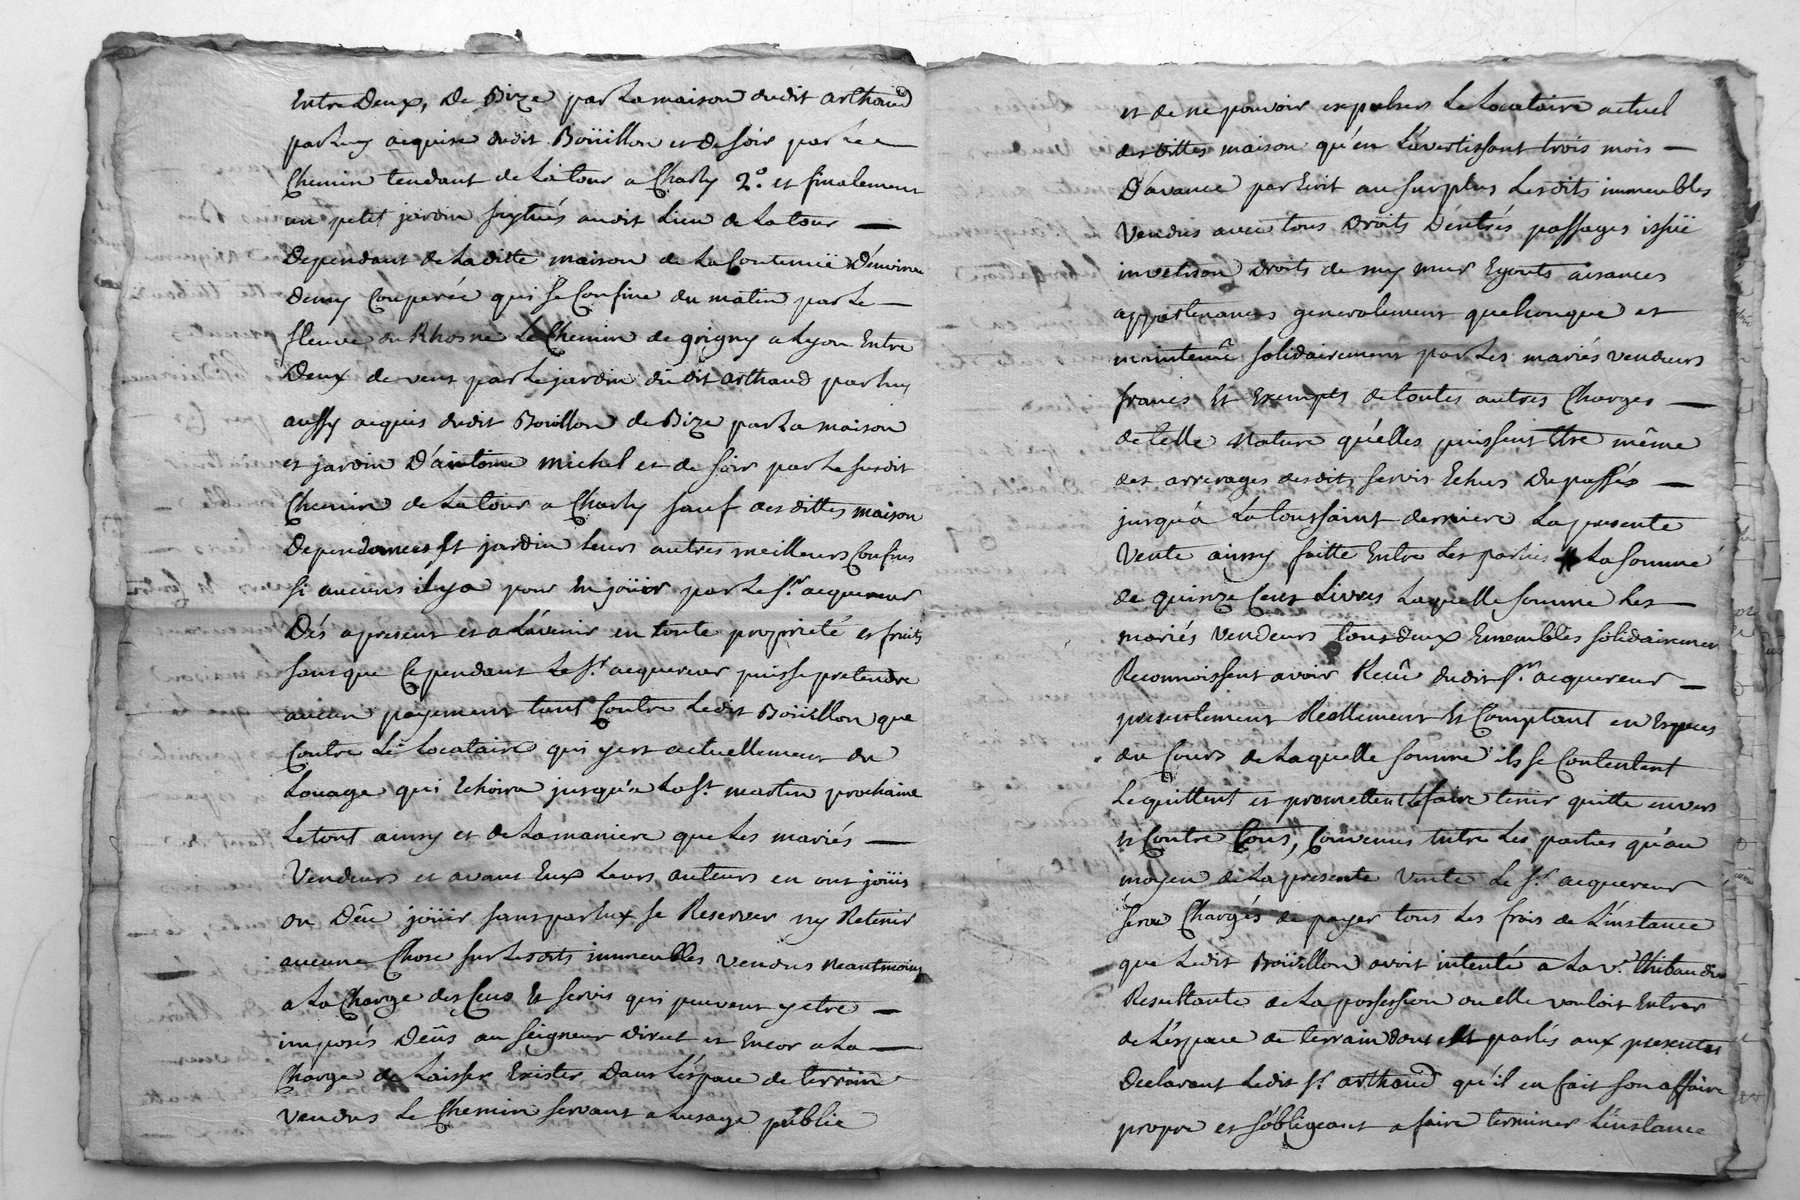 Entre Deux, De Bize par La maison dudit arthaud
par Luy acquise dudit Boüillon et De soir par Le
Chemin tendant de La tour a Charly 2º. et finalement
un petit jardin scytués audit Lieu de La tour —
Dependant de La ditte maison de La Contenüe D'environ
demy Couperée qui se Confine du matin par Le —
fleuve du Rhosne Le Chemin de grigny a Lyon Entre
Deux de vent par Le jardin du dit arthaud par luy
aussy acquis dudit Bouillon de Bize par La maison
et jardin D'antoine Michel et de soir par Le susdit
Chemin de La tour a Charly sauf des dittes maison
Dependances Et jardin Leurs autres meilleurs Confins
si aucuns il y a pour En joüir par Le Sr. acquereur
Dés apresent et a L'avenir en toute proprieté et fruits
sans que Cependant Le Sr. acquereur puisse pretendre
aucun payement tant Contre Ledit Boüillon que
Contre Le Locataire qui y est actuellement du
Louage qui Echoira jusqu'a La St. martin prochaine
Le tout ainsy et de La maniere que Les mariés —
Vendeurs et avant Eux Leurs auteurs en ont joüis
ou Dêu joüir sans par Eux se Reserver ny Retenir
aucune Chose sur Lesdits immeubles vendus Neantmoins
a La Charge des Cens Et servis qui peuvent y etre —
imposés Dêus au seigneur Direct et Encor a La —
Charge de Laisser Exister Dans L'espace de terrain
vendus Le Chemin servant a Lusage publie
et de ne pouvoir expulser Le Locataire actuel
des dittes maison qu'en L'avertissant trois mois —
D'avance par Ecrit au surplus Lesdits immeubles
Vendus avec tous Droits D'entrés passages issüe
invetison Droits de my mur Egouts aisances
appartenances generalement quelconque et
maintenû solidairement par Les mariés vendeurs
francs Et Exempts de toutes autres Charges —
de telle Nature qu'elles puissent Etre même
des arrerages desdits servis Echus Du passés —
jusqu'a La toussaint derniere La presente
Vente ainsy faitte Entre Les parties La somme
de quinze Cens Livres Laquelle somme Les —
mariés Vendeurs tous deux Ensembles solidairement
Reconnoissent avoir Recû dudit Sr. acquereur —
presentement Reellement Et Comptant en Especes
du Cours de Laquelle somme ils se Contentent
Le quittent et promettent Le faire tenir quitte envers
et Contre Tous, Convenus Entre Les parties qu'au
moyen de La presente Vente Le Sr. acquereur
sera Chargés de payer tous Les frais de L'instance
que Ledit Boüillon avoit intenté a La Ve. Thibaudier
Resultante de La possession ou elle vouloit Entrer
de L'espace de terrain dont est parlés aux presentes
Declarant Ledit Sr. arthaud qu'il en fait son affaire
propre et s'obligeant a faire terminer L'instance